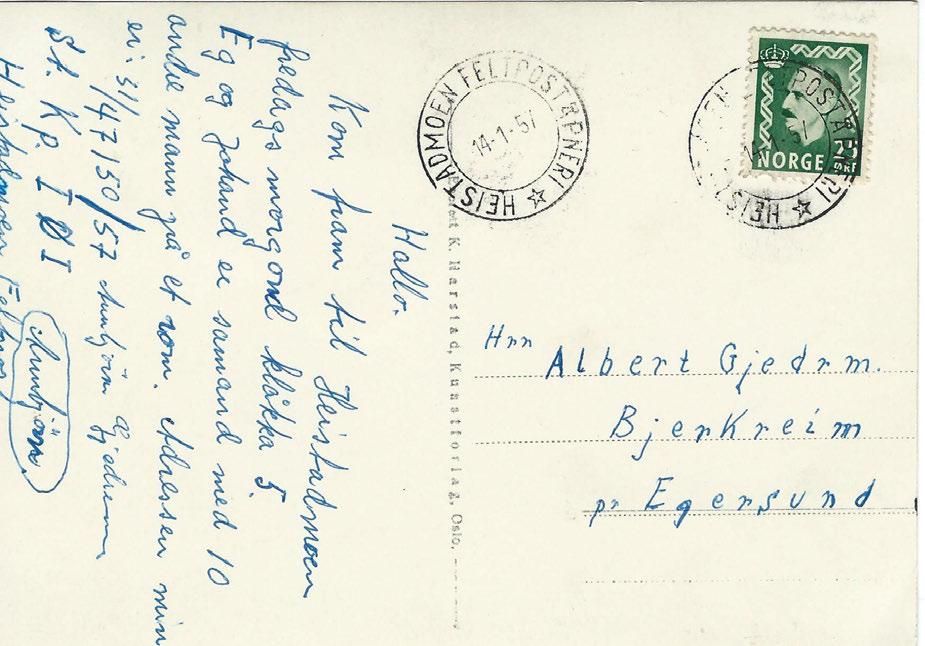 Hallo.
Kom fram til Heistadmoen
fredags morgond klåkka 5.
Eg og Johand er samand med 10
andre mann på et rom. Adressen min
er: 31/47150/57 Arnbjörn Gjedrem
St. Kp. I ØI
Heistadmoen
Arnbjörn.
HEISTADMOEN FELTPOSTÅPNERI
14-1-57
HEISTADMOEN FELTPOSTÅPNERI
14-1-57
NORGE 25 ØRE
K. Harstad, Kunstforlag, Oslo.
Hrr Albert Gjedrm.
Bjerkreim
pr Egersund